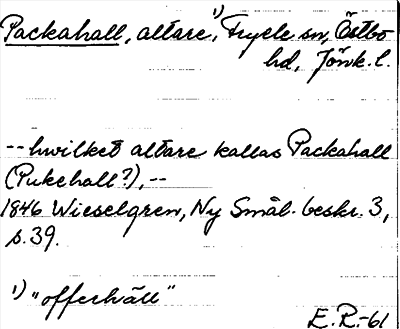 Packahall, altare,¹⁾ Fryele sn, Östbo
hd, Jönk. l.
-- hwilket altare kallas Packahall
(Pukehall?), --
1846 Wieselgren, Ny Smål. beskr. 3,
s. 39.
¹⁾ "offerhäll"
E.R.-61